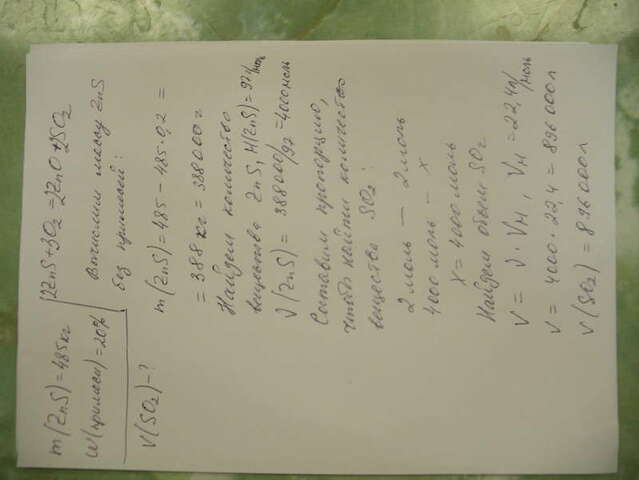 m(ZnS)=485кг
W(примеси)=20%
V(SO₂)-?
2ZnS+3O₂=2ZnO+2SO₂
Вычислим массу ZnS
без примесей:
m(ZnS)=485-485·0,2=
=388 кг=388000г
Найдем количество
вещества ZnS, M(ZnS)=97г/моль
ν(ZnS)=388000/97=4000моль
Составим пропорцию,
чтобы найти количество
вещества SO₂:
2 моль — 2 моль
4000 моль - x
x=4000 моль
Найдем объем SO₂
V=ν·Vм, Vм=22,4л/моль
V=4000·22,4=896000л
V(SO₂)=896000л